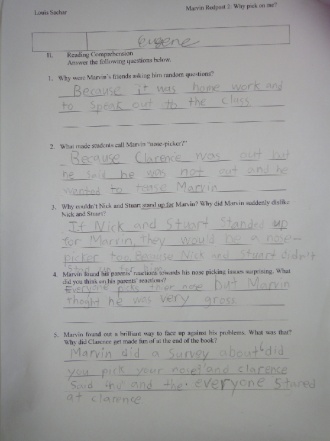 Louis Sachar Marvin Redpost 2: Why pick on me?
Eugene
II. Reading Comprehension
Answer the following questions below.
1. Why were Marvin's friends asking him random questions?
Because it was home work and
to speak out to the class
2. What made students call Marvin "nose-picker?"
Because Clarence was out but
he said he was not out and he
wanted to tease Marvin
3. Why couldn't Nick and Stuart stand up for Marvin? Why did Marvin suddenly dislike
Nick and Stuart?
If Nick and Stuart Standed up
for Marvin, they would be a nose-
picker too Because Nick and Stuart didn't
4. Marvin found his parents' reactions towards his nose picking issues surprising. What
did you think on his parents' reactions?
Everyone picks nose but Marvin
thoght he was very gross
5. Marvin found out a brilliant way to face up against his problems. What was that?
Why did Clarence get made fun of at the end of the book?
Marvin did a survey about did
you pick your nose and clarence
said and the everyone stared
at clarence